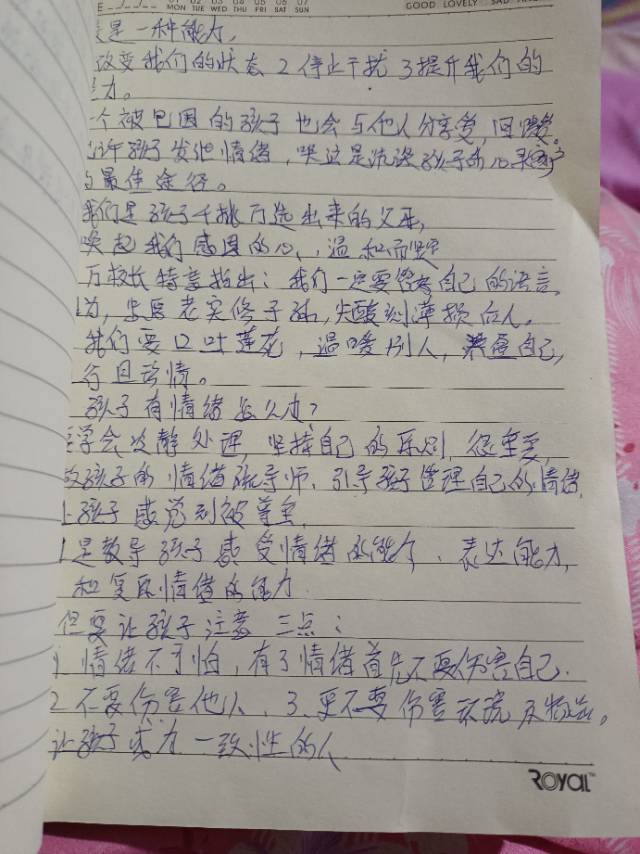 01 02 03 04 05 06 07
MON TUE WED THU FRI SAT SUN
GOOD LOVELY SAD
是一种能力,
改变我们的状态 2 停止干扰 3 提升我们的
力。
个被包围的孩子也会与他人分享爱,回馈爱。
许孩子发泄情绪,哭这是流淡孩子
最佳途径。
我们是孩子千挑万选出来的父母,
唤起我们感恩的心,温和而坚
万校长特意指出:我们一定要 自己的语言
为, 老实修子孙,尖酸刻薄损后人。
我们要口吐莲花,温暖别人,滋自己,
行且珍惜。
孩子有情绪怎么办?
学会冷静处理,坚持自己的原则,很重要,
做孩子的情绪疏导师、引导孩子管理自己的情绪,
让孩子感觉到被尊重,
是教导孩子感受情绪的能力、表达能力,
和复原情绪的能力
但要让孩子注意三点:
1 情绪不可怕,有了情绪首先不要伤害自己.
2 不要伤害他人、3、更不要伤害环境及物品。
让孩子成为一致性的人
ROYAL